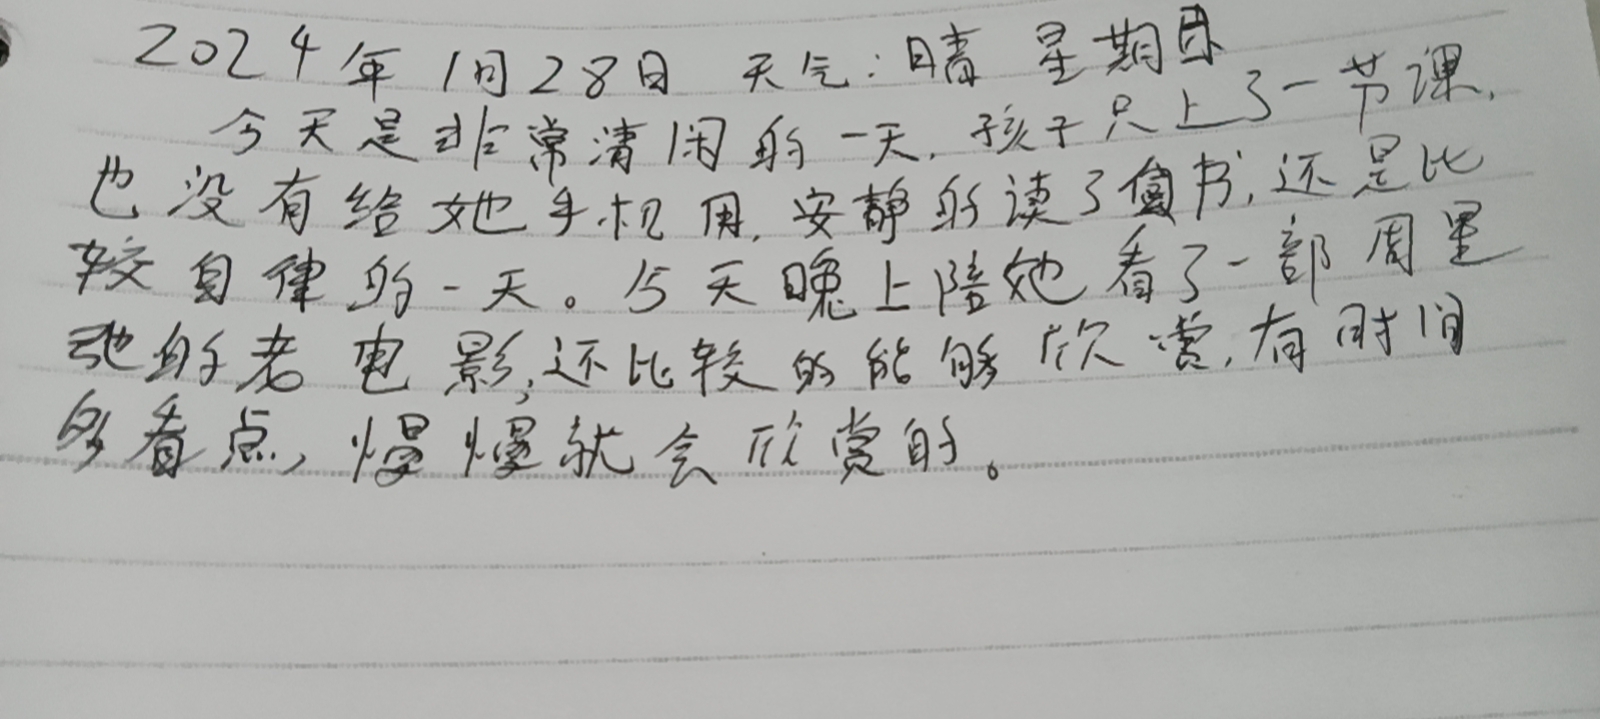 2024年1月28日 天气:晴 星期日
今天是非常清闲的一天,孩子只上了一节课,
也没有给她手机用,安静的读了会书,还是比
较自律的一天。今天晚上陪她看了一部周星
驰的老电影,还比较的能够欣赏,有时间
多看点,慢慢就会欣赏的。